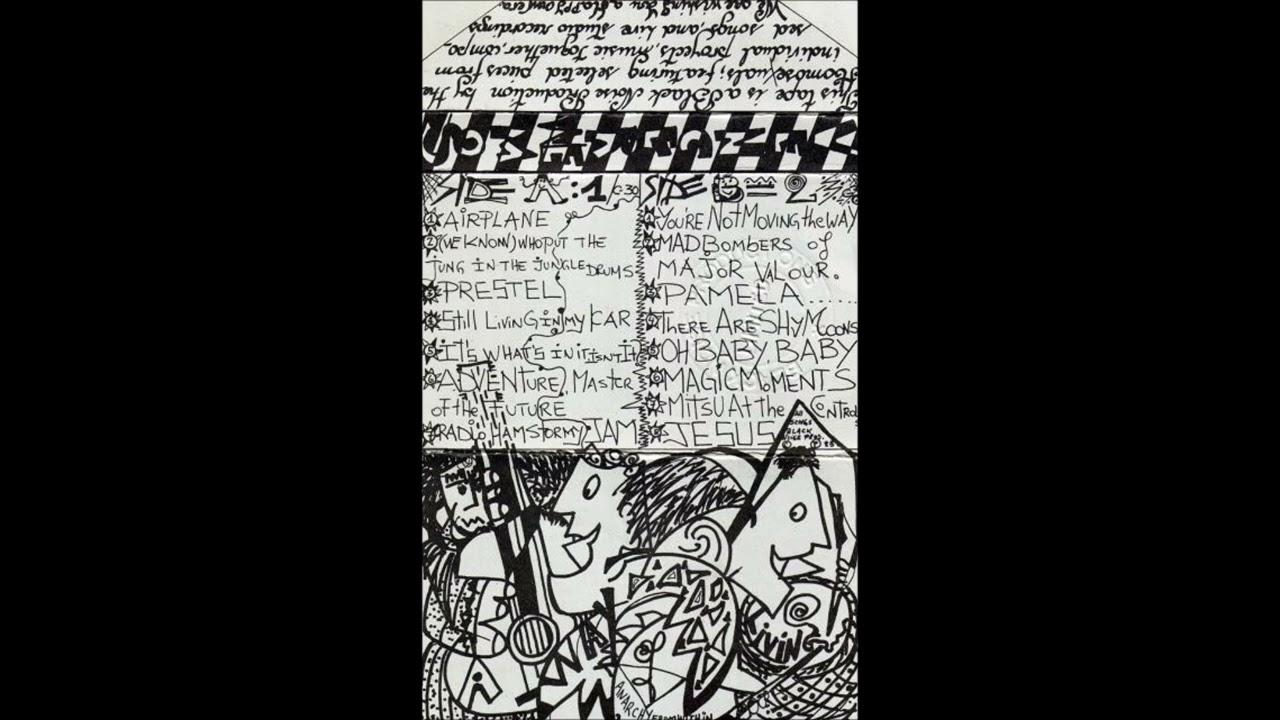 This tape is a Black Noise Production by the
Homosexuals; featuring selected pieces from
individual projects, music together, compo.
sed songs, and live studio recordings
We are wishing you a happy new era
SIDE A:1 C30
1 AIRPLANE
2 (WE KNOW) WHO PUT THE
JUNG IN THE JUNGLE DRUMS
3 PRESTEL
4 Still LiviNG IN MY CAR
5 IT'S WHAT'S IN IT ISN'T IT
6 ADVENTURE, MASTER
OF the FUTURE
7 RADIO HAM STORMY JAM
SIDE B=2
1 YOU'RE NOT MOVING the WAY
2 MAD BOMBERS of
MAJOR VALOUR.
3 PAMELA......
4 THERE ARE SHY MCOONS
5 OH BABY, BABY
6 MAGIC MOMENTS
7 MITSU At the CONTROL
8 JESUS
ALL
SONGS
BLACK
NOISE PROD.
LIVING
ANARCHY FROM WITHIN